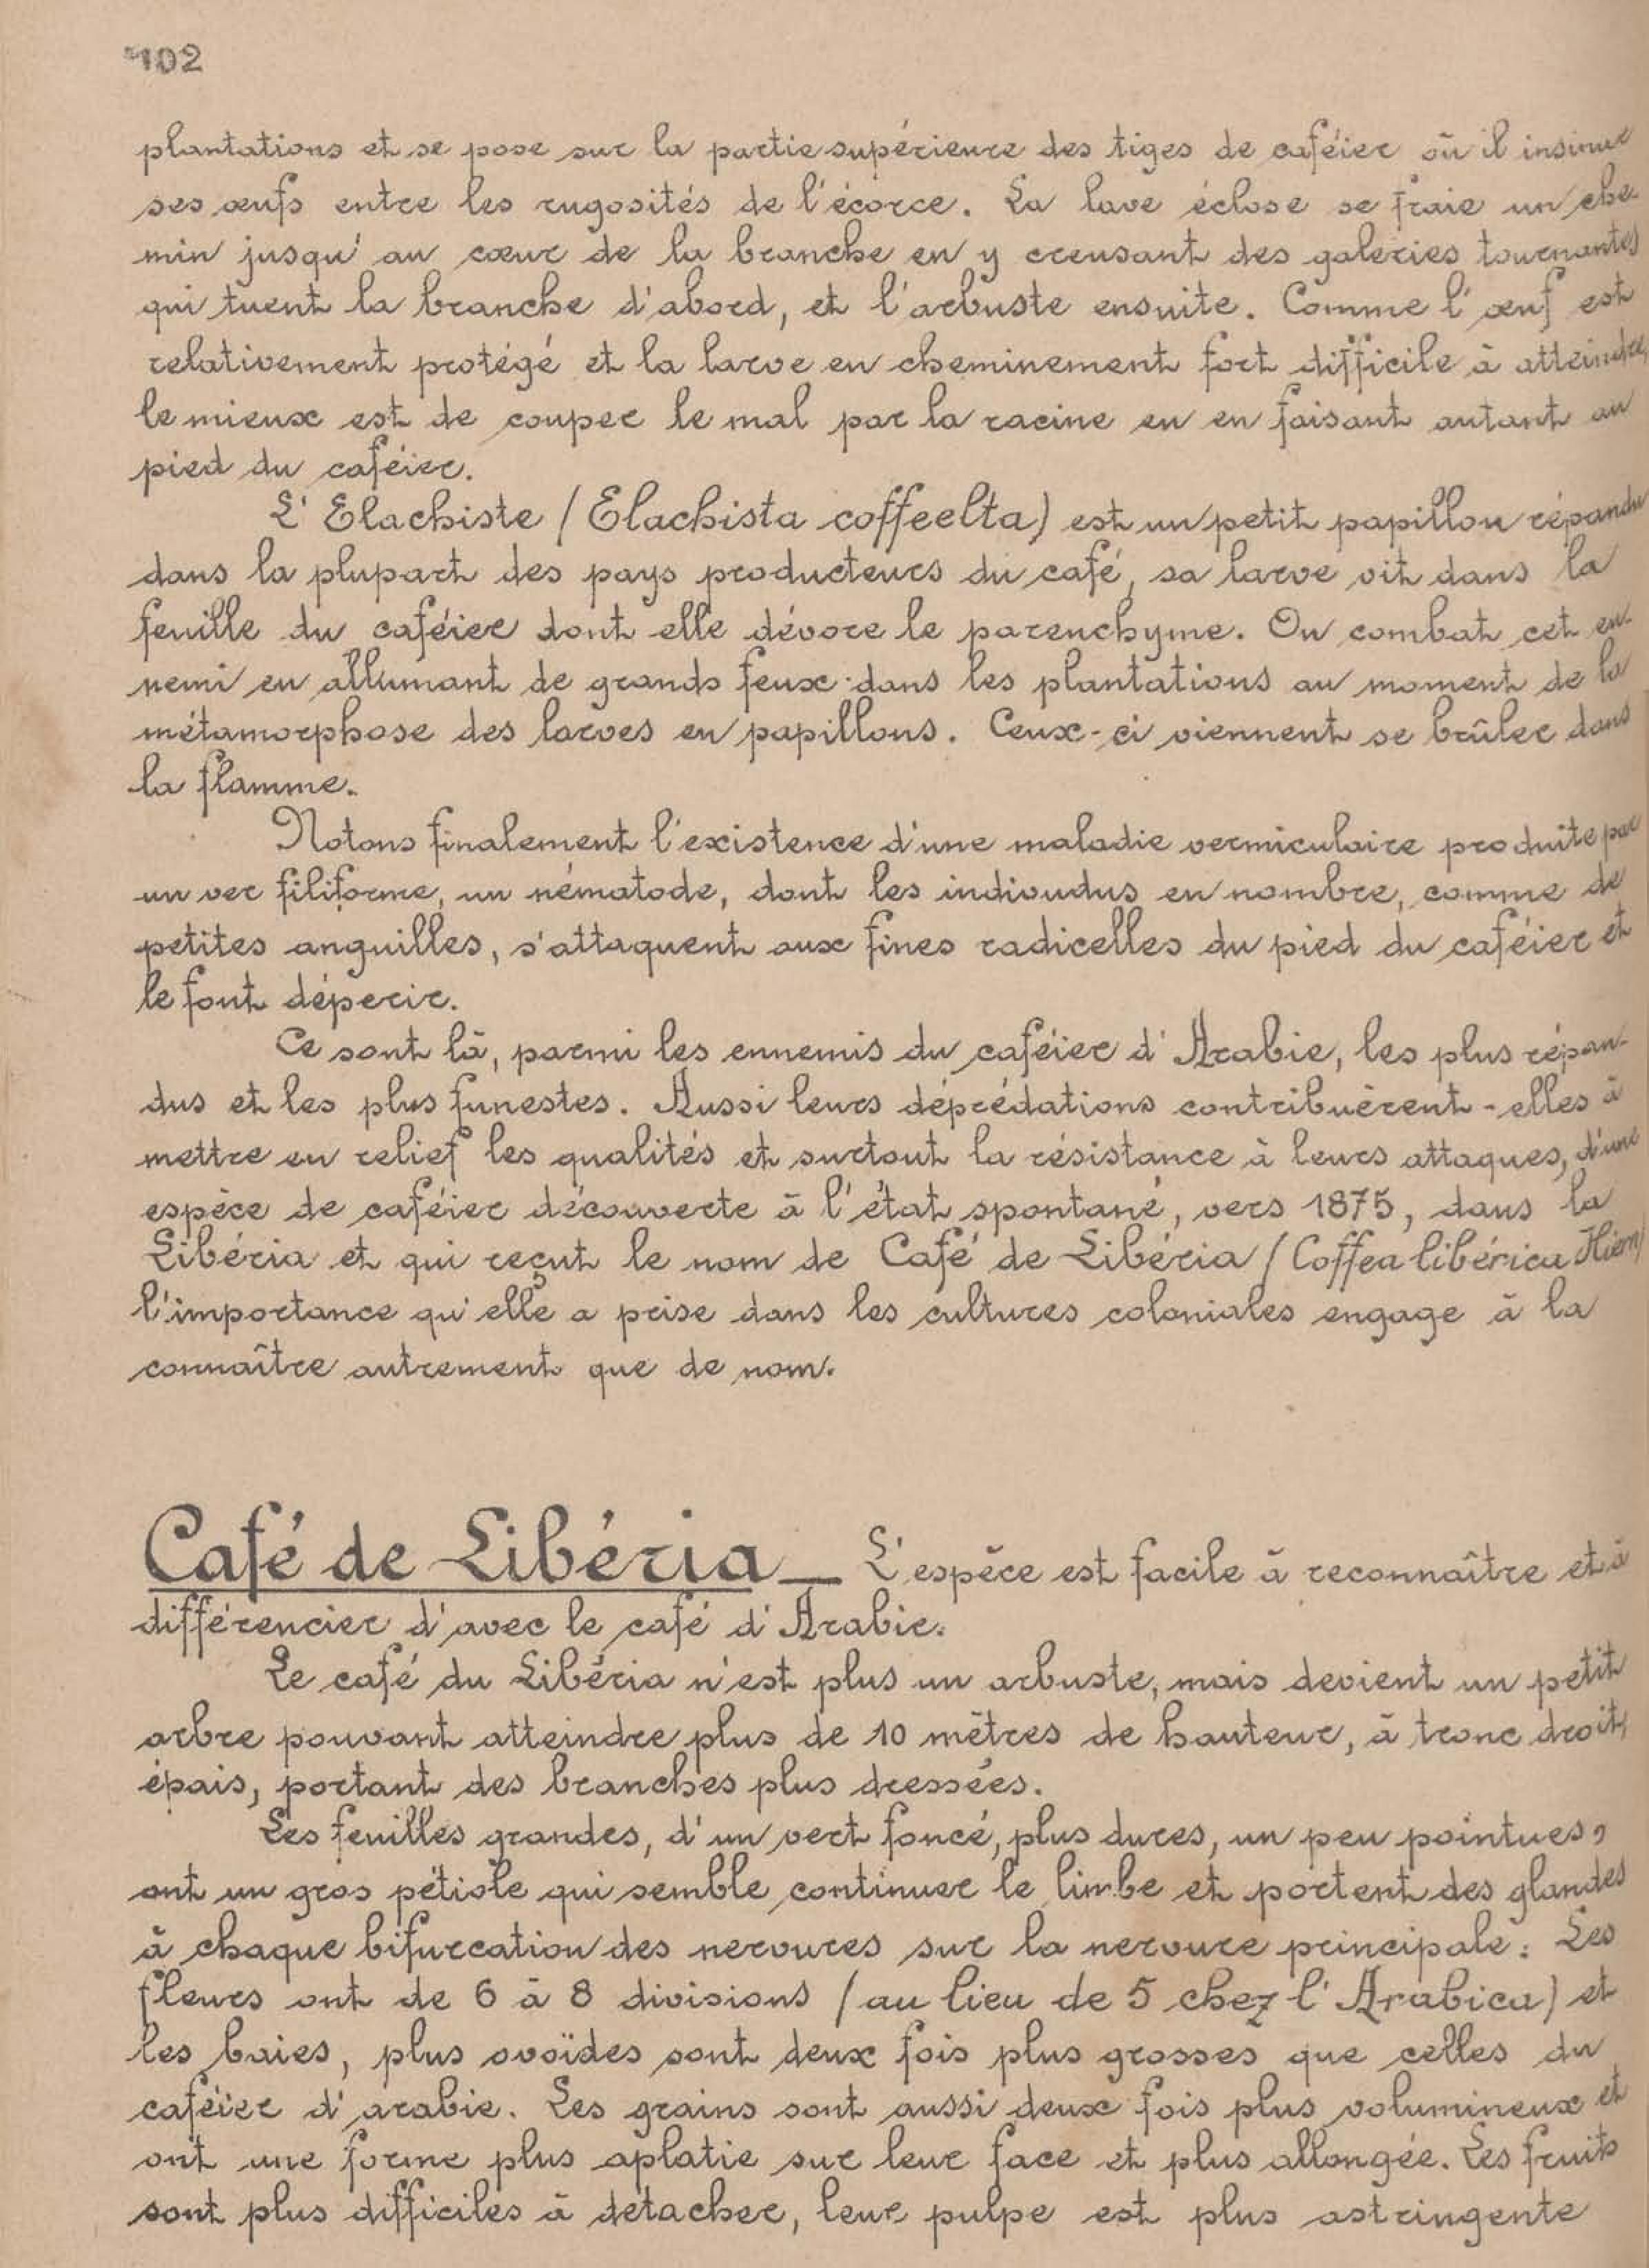 102
plantations et se pose sur la partie supérieure des tiges de caféier où il insinue
ses œufs entre les rugosités de l'écorce. La lave éclose se fraie un che-
min jusqu'au cœur de la branche en y creusant des galeries tournantes
qui tuent la branche d'abord, et l'arbuste ensuite. Comme l'œuf est
relativement protégé et la larve en cheminement fort difficile à atteindre,
le mieux est de couper le mal par la racine en en faisant autant au
pied du caféier.
L'Elachiste (Elachista coffeelta) est un petit papillon répandu
dans la plupart des pays producteurs du café, sa larve vit dans la
feuille du caféier dont elle dévore le parenchyme. On combat cet en-
nemi en allumant de grands feux dans les plantations au moment de la
métamorphose des larves en papillons. Ceux-ci viennent se brûler dans
la flamme.
Notons finalement l'existence d'une maladie vermiculaire produite par
un ver filiforme, un nématode, dont les indivudus en nombre, comme de
petites anguilles, s'attaquent aux fines radicelles du pied du caféier et
le font déperir.
Ce sont là, parmi les ennemis du caféier d'Arabie, les plus répan-
dus et les plus funestes. Aussi leurs déprédations contribuèrent-elles à
mettre en relief les qualités et surtout la résistance à leurs attaques, d'une
espèce de caféier découverte à l'état spontané, vers 1875, dans la
Libéria et qui reçut le nom de Café de Libéria (Coffea libérica Hiern)
l'importance qu'elle a prise dans les cultures coloniales engage à la
connaître autrement que de nom.
Café de Libéria — L'espèce est facile à reconnaître et à
différencier d'avec le café d'Arabie.
Le café du Libéria n'est plus un arbuste, mais devient un petit
arbre pouvant atteindre plus de 10 mètres de hauteur, à tronc droit,
épais, portant des branches plus dressées.
Les feuilles grandes, d'un vert foncé, plus dures, un peu pointues,
ont un gros pétiole qui semble continuer le limbe et portent des glandes
à chaque bifurcation des nervures sur la nervure principale. Les
fleurs ont de 6 à 8 divisions (au lieu de 5 chez l'Arabica) et
les baies, plus ovoïdes sont deux fois plus grosses que celles du
caféier d'arabie. Les grains sont aussi deux fois plus volumineux et
ont une forme plus aplatie sur leur face et plus allongée. Les fruits
sont plus difficiles à détacher, leur pulpe est plus astringente